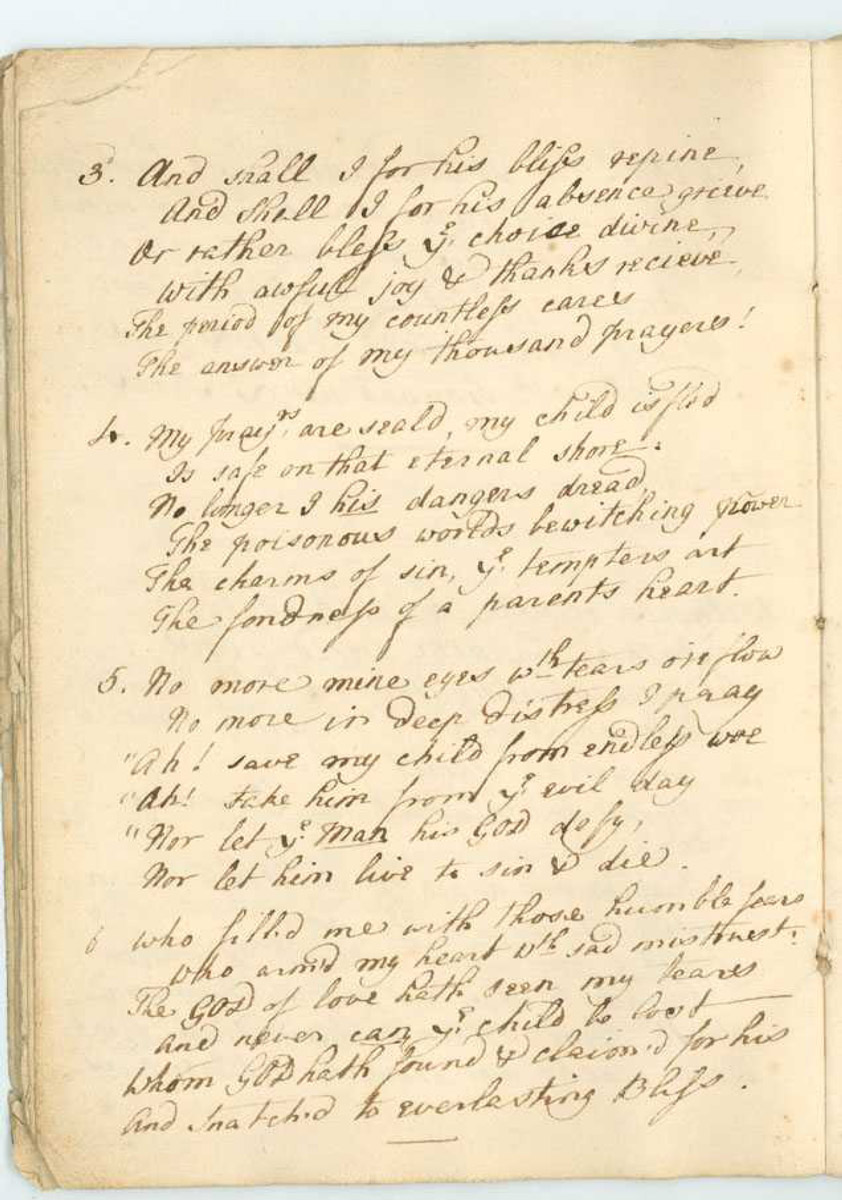 3. And shall I for his bliss repine,
And shall I for his absence grieve
Or rather bless ye choice divine,
With awful joy & thanks recieve
The period of my countless cares
The answer of my thousand prayers!
4. My prayrs are seald, my child is fled
Is safe on that eternal shore.
No longer I his dangers dread,
The poisonous worlds bewitching power
The charms of sin, ye tempters art
The fondness of a parents heart.
5. No more mine eyes wth tears oreflow
No more in deep distress I pray
"Ah! save my child from endless woe
"Ah! take him from ye evil day
"Nor let ye Man his GOD defy,
Nor let him live to sin & die.
6 Who fill'd me with those humble fears
Who arm'd my heart wth sad mistrust:
The GOD of love hath seen my tears
and never can ye child be lost
Whom GOD hath found & claim'd for his
And snatch'd to everlasting Bliss.